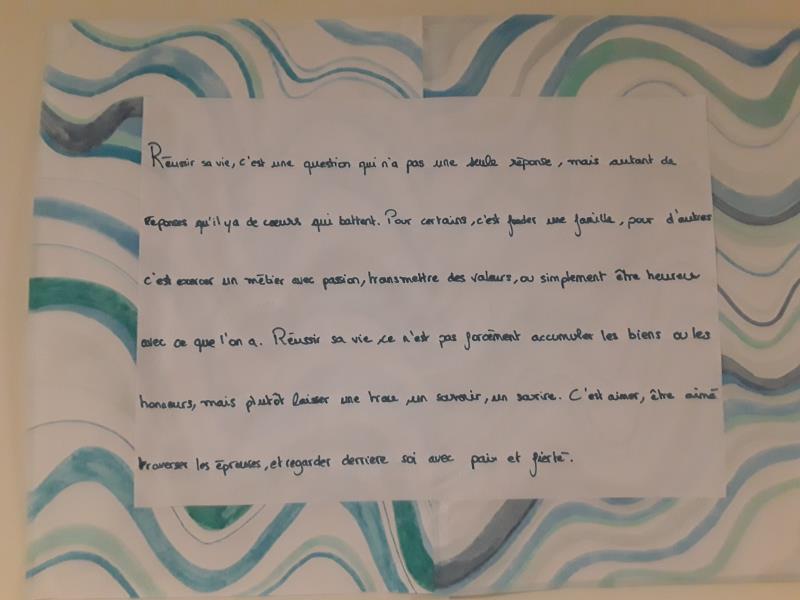 Réussir sa vie, c'est une question qui n'a pas une seule réponse, mais autant de
réponses qu'il y a de cœurs qui battent. Pour certains, c'est fonder une famille, pour d'autres
c'est exercer un métier avec passion, transmettre des valeurs, ou simplement être heureux
avec ce que l'on a. Réussir sa vie, ce n'est pas forcément accumuler les biens ou les
honneurs, mais plutôt laisser une trace, un savoir, un sourire. C'est aimer, être aimé
traverser les épreuves, et regarder derriere soi avec paix et fierté.